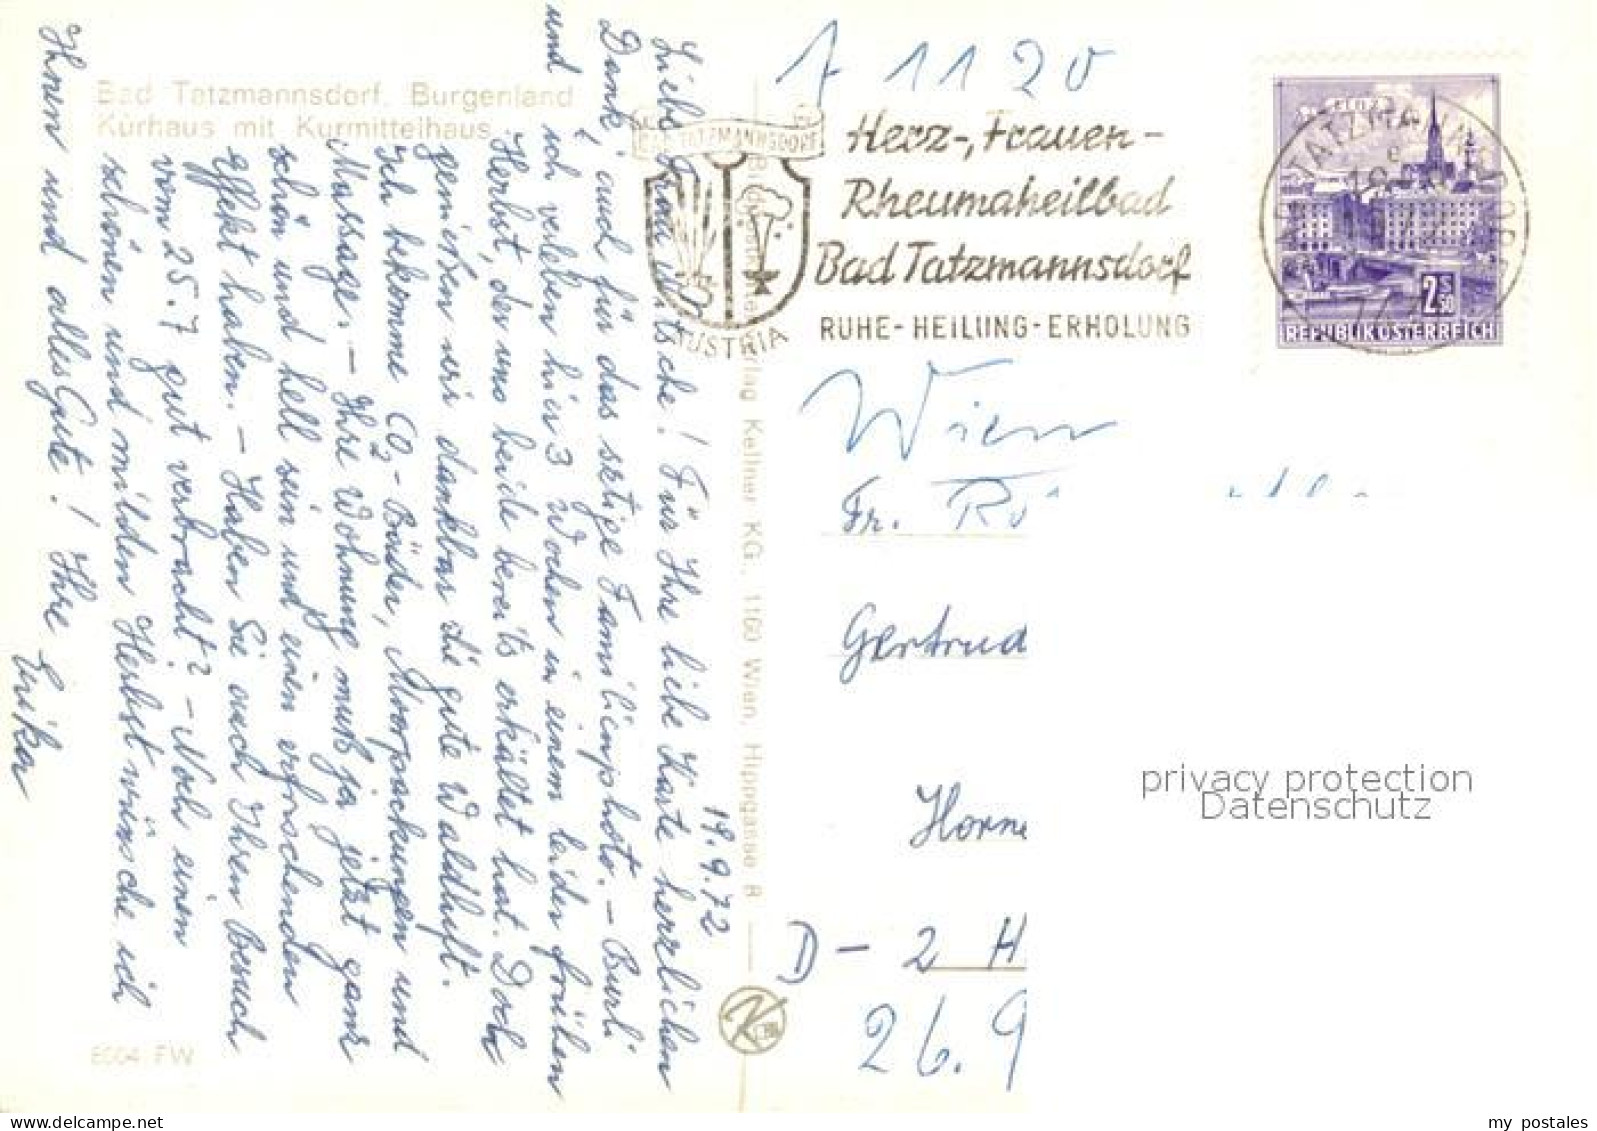 Bad Tatzmannsdorf, Burgenland
Kurhaus mit Kurmittelhaus
19.9.72
Liebe Frau! Für Ihre liebe Karte herzlichen
Dank, auch für das Familienphoto. – Burli
und ich verleben hier 3 Wochen in einem leider frühen
Herbst, der uns beide bereits erkältet hat. Doch
genießen wir dankbar die gute Waldluft.
Ich bekomme CO2-Bäder, Moorpackungen und
Massage. – Ihre Wohnung muß ja jetzt ganz
schön und hell sein und einen erfrischenden
Effekt haben. – Haben Sie auch Ihren Besuch
vom 25.7 gut verbracht? – Noch einen
schönen und milden Herbst wünsche ich
Ihnen und alles Gute! Ihre
Erika
6004 FW
Verlag Kellner KG., 1160 Wien, Hippgasse
K
A 1120
BAD TATZMANNSDORF
AUSTRIA
Herz-, Frauen-
Rheumaheilbad
Bad Tatzmannsdorf
RUHE-HEILUNG-ERHOLUNG
2S50
REPUBLIK ÖSTERREICH
Wien
Fr.
Gertrud
Horne
D – 2 H
26.9
privacy protection
Datenschutz
my postales